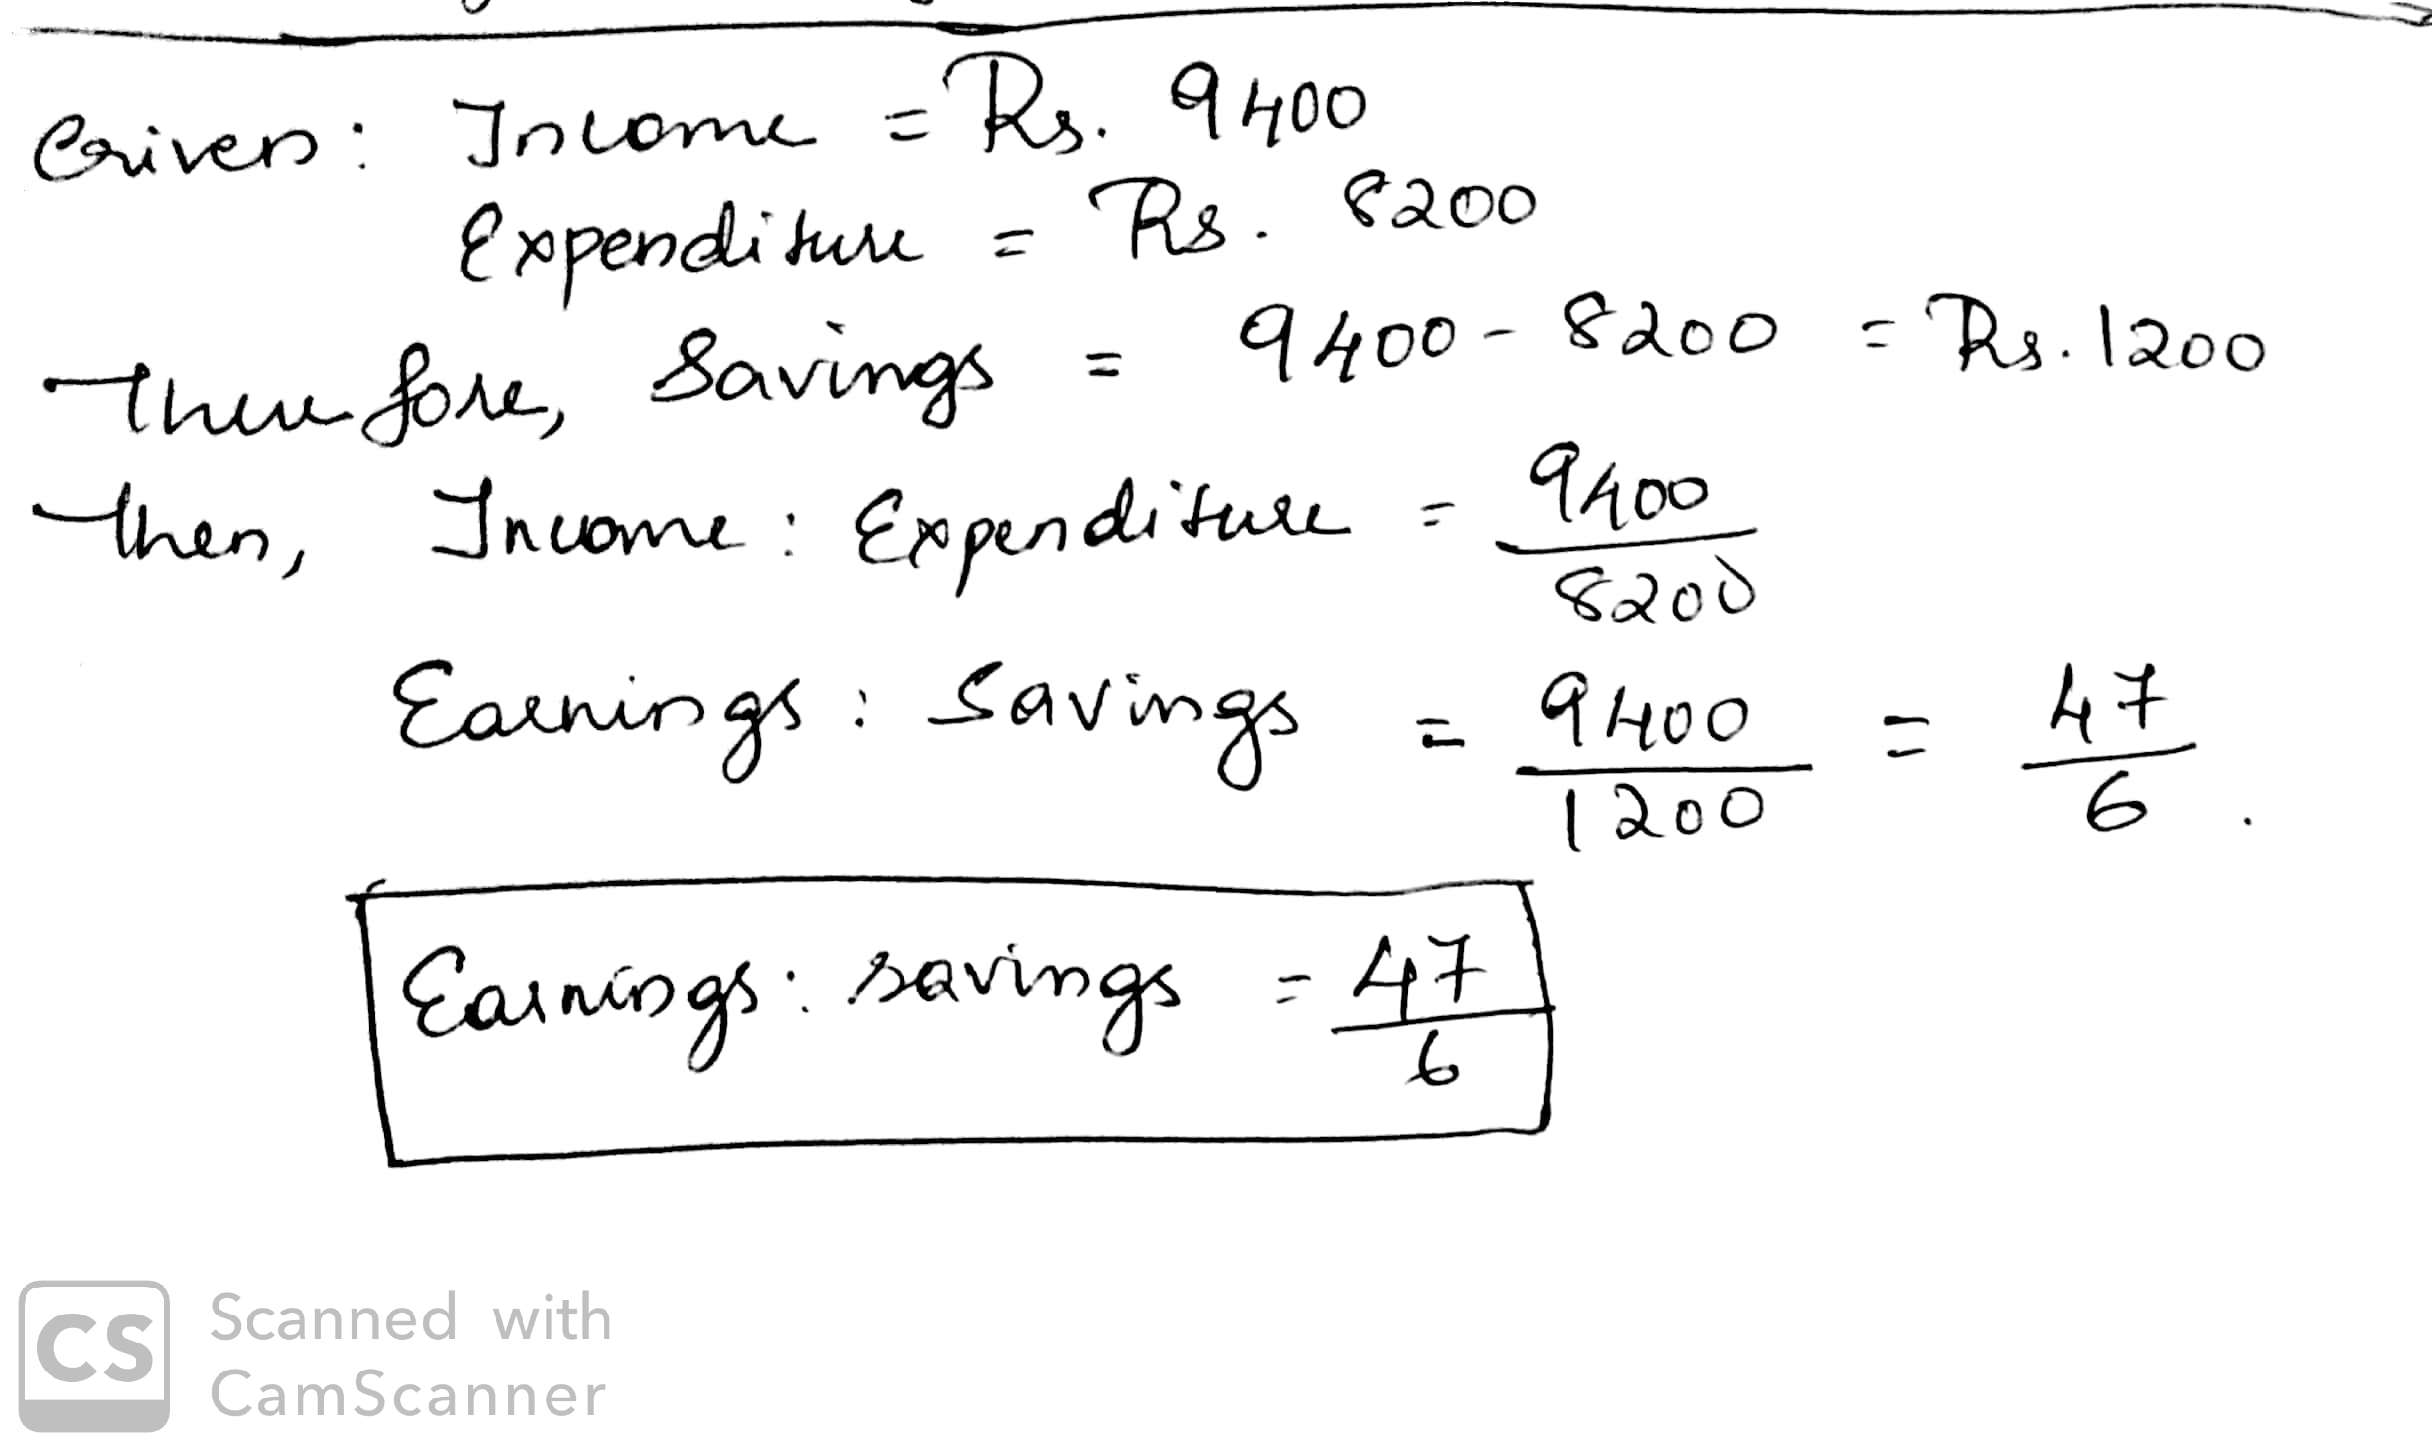 Given: Income = Rs. 9400
Expenditure = Rs. 8200
Therefore, Savings = 9400 - 8200 = Rs. 1200
Then, Income : Expenditure = 9400/8200
Earnings : Savings = 9400/1200 = 47/6.
Earnings : savings = 47/6
CS Scanned with
CamScanner